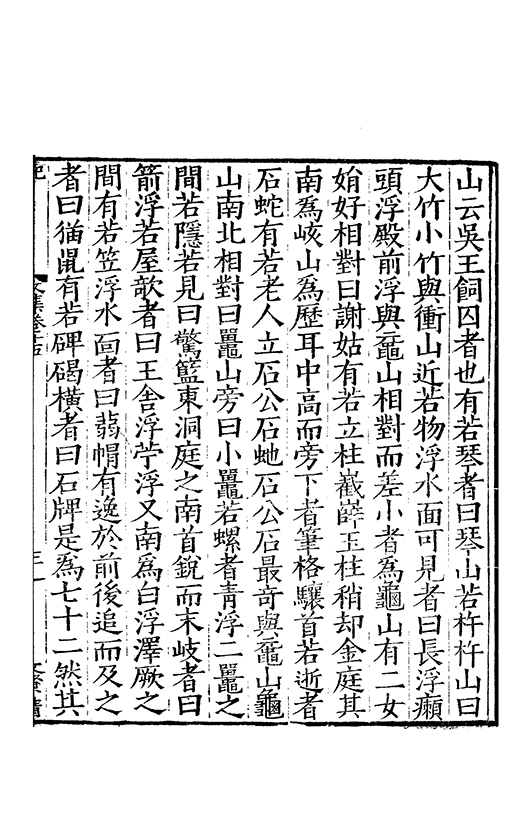 山云吳王飼囚者也有若琴者曰琴山若杵杵山曰
大竹小竹與衝山近若物浮水面可見者曰長浮癩
頭浮殿前浮與黿山相對而差小者為龜山有二女
娟好相對曰謝姑有若立柱巀嶭玉柱稍却金庭其
南為峐山為歷耳中高而旁下者筆格驤首若逝者
石蛇有若老人立石公石虵石公石最奇與黿山龜
山南北相對曰鼉山旁曰小鼉若螺者青浮二鼉之
間若隱若見曰驚籃東洞庭之南首銳而末岐者曰
箭浮若屋欹者曰王舍浮苧浮又南為白浮澤厥之
間有若笠浮水面者曰蒻帽有逸於前後追而及之
者曰猫鼠有若碑碣橫者曰石牌是為七十二然其